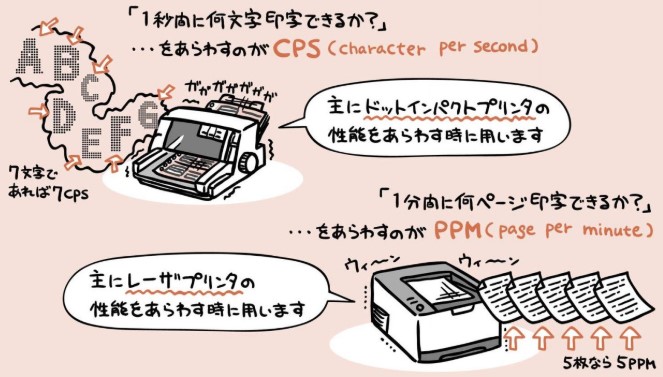 「1秒間に何文字印字できるか?」
・・・をあらわすのがCPS(character per second)
A B C
D E F G
ガガガガガガガ
主にドットインパクトプリンタの
性能をあらわす時に用います
7文字で
あれば7CPS
「1分間に何ページ印字できるか?」
・・・をあらわすのがPPM(page per minute)
ウィ〜ン ウィ〜ン
主にレーザプリンタの
性能をあらわす時に用います
5枚なら5PPM